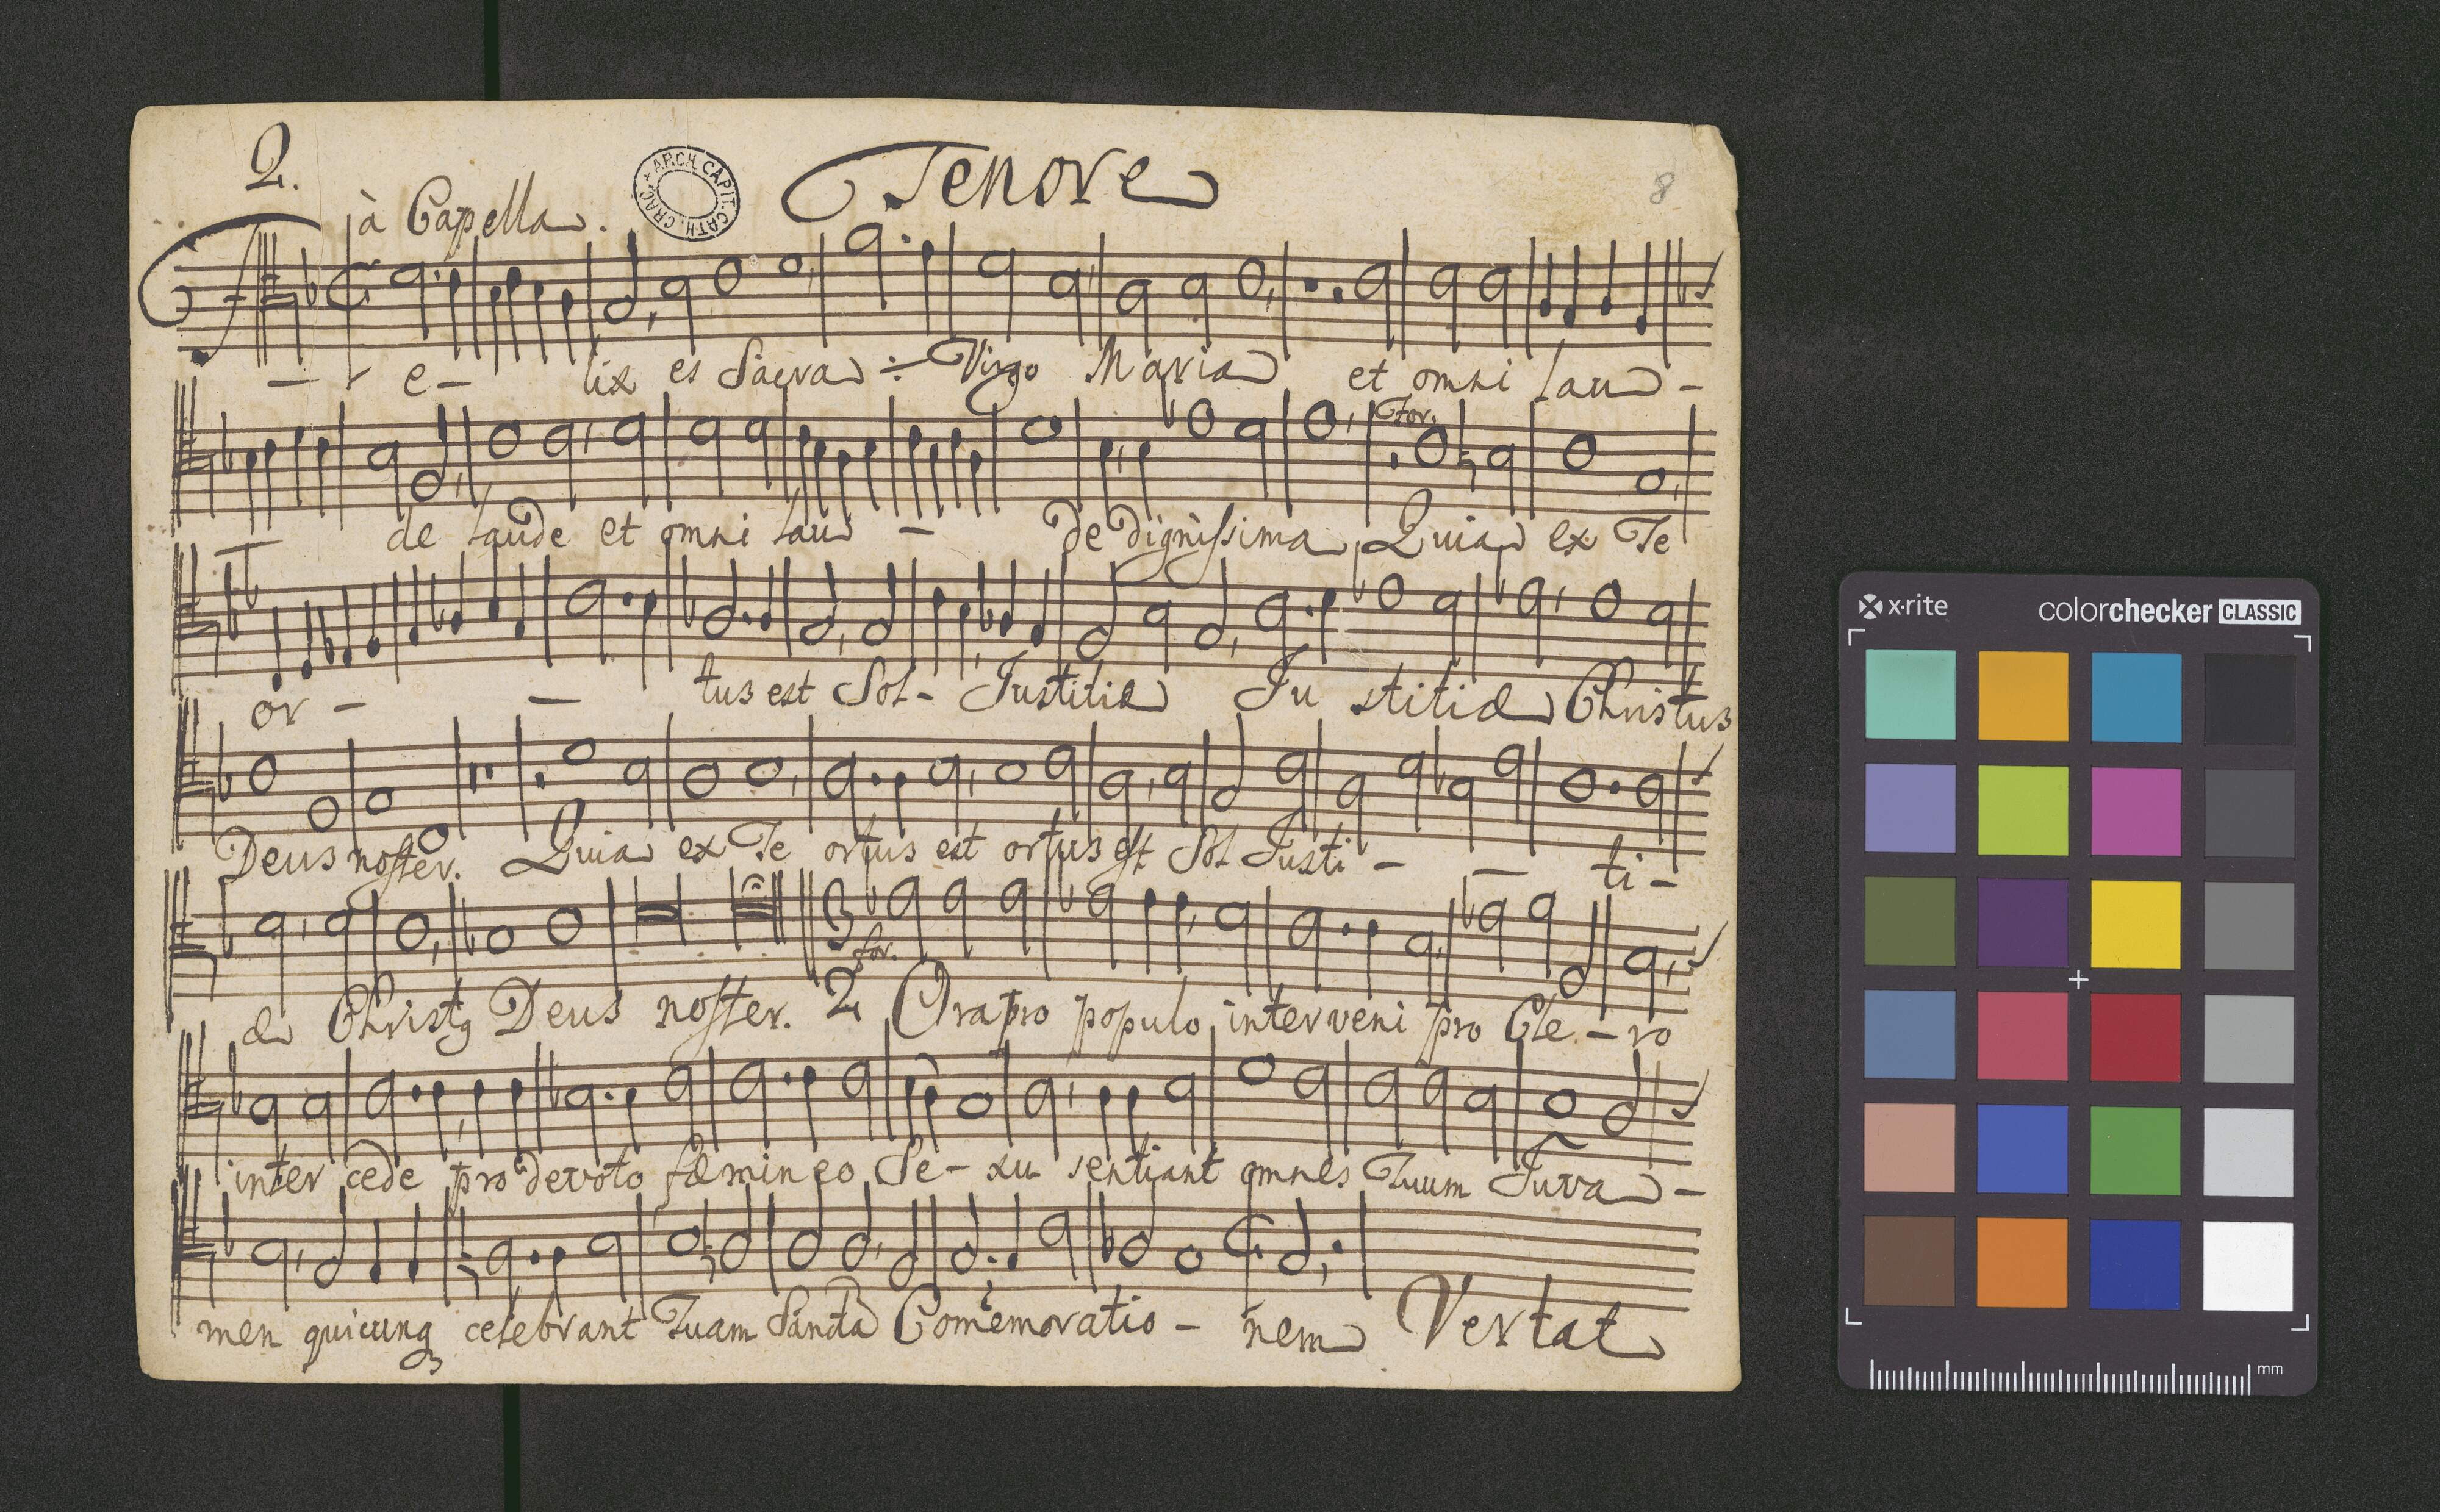 2.
Tenore
8
à Capella.
ARCH. CAPIT. CATH. CRAC.
Fe- lix es Sacra ÷ Virgo Maria et omni lau -
For.
de laude et omni lau - de dignissima Quia ex Te
or - - tus est Sol - Justitiæ Ju stitiæ Christus
Deus noster. Quia ex Te ortus est ortus est Sol Justi - - ti -
for.
æ Christq Deus noster. 2 Ora pro populo interveni pro Cle - ro
inter cede pro devoto fæmineo Se - xu sentiant omnes Tuum Juva -
men quicunq celebrant Tuam Sancta Comemoratio - nem Vertat
x·rite
colorchecker CLASSIC
mm